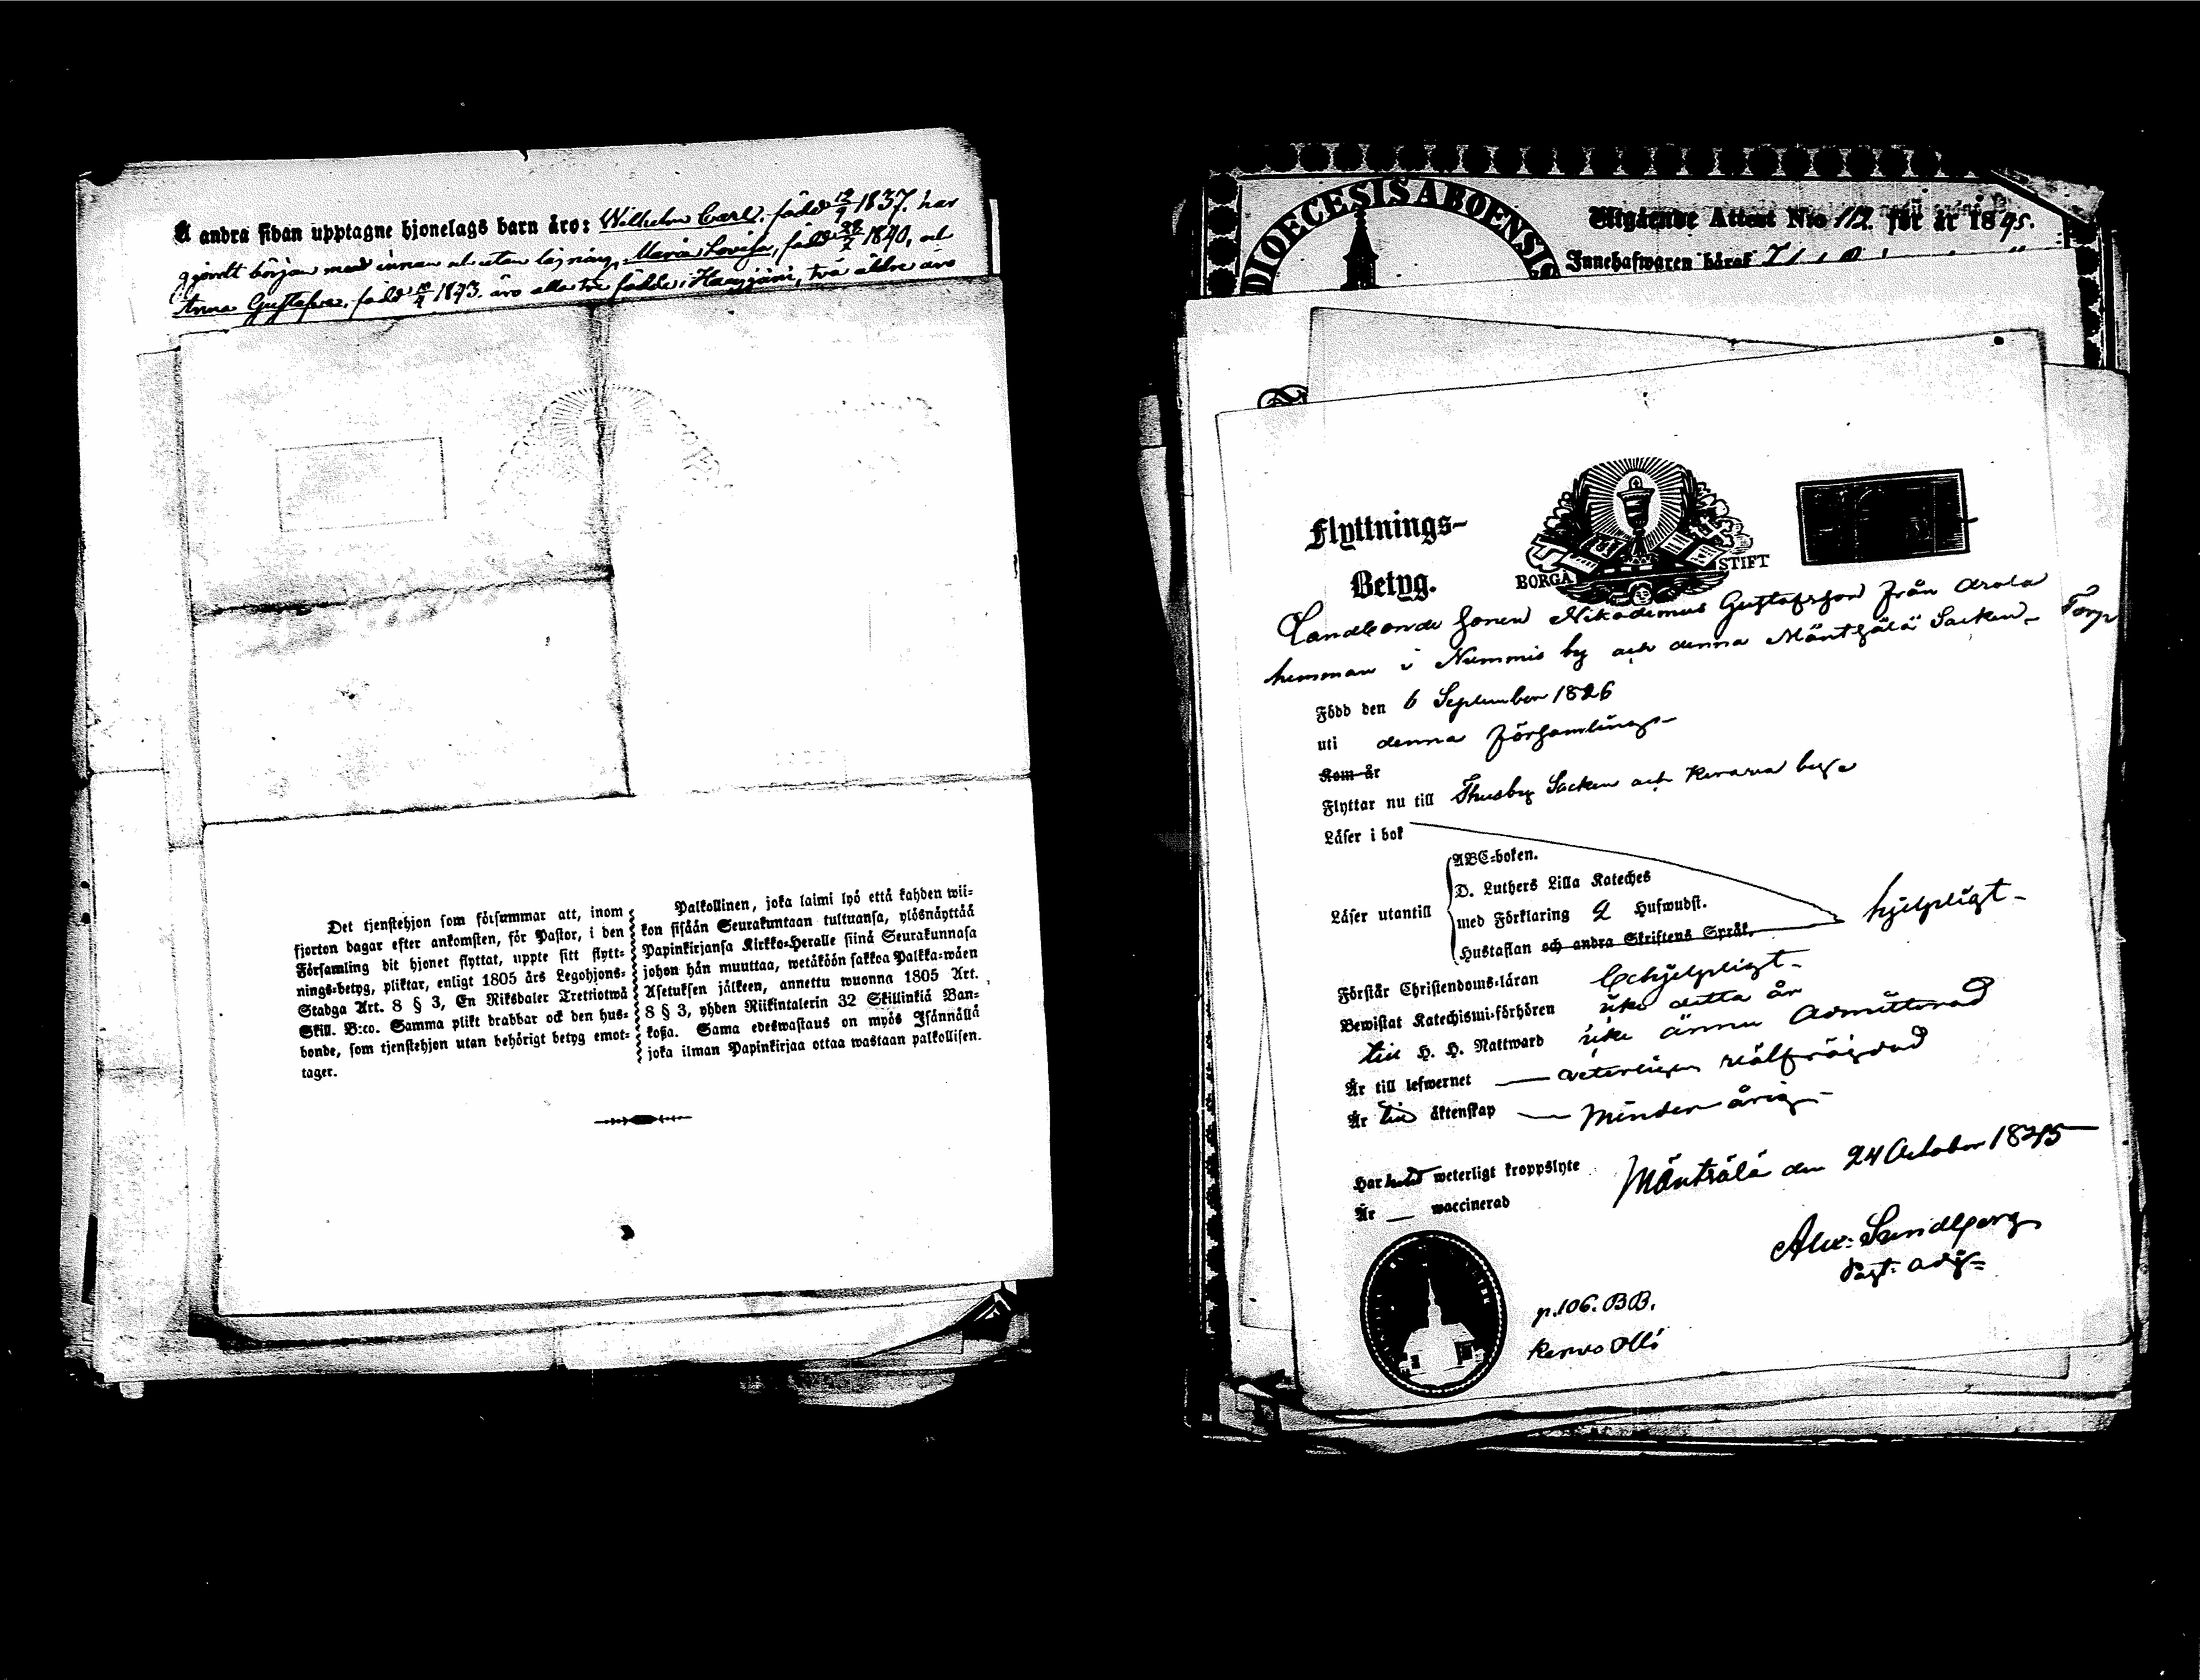 Å andra sidan upptagne hjonelags barn äro: Wilhelm Carl, född 12/9 1837. har
gjordt början med innan och utan läsning, Maria Lovisa, född 28/2 1840, och
Anna Gustafva, född 1843. äro alla tre födde i Haapjärvi, två äldre äro
Det tjenstehjon som försummar att, inom
fjorton dagar efter ankomsten, för Pastor, i den
Församling dit hjonet flyttat, uppte sitt flytt-
nings-betyg, pliktar, enligt 1805 års Legohjons-
Stadga Art. 8 § 3, En Riksdaler Trettiotwå
Skill. B:co. Samma plikt drabbar ock den hus-
bonde, som tjenstehjon utan behörigt betyg emot-
tager.
Palkollinen, joka laimi lyö että kahden wii-
kon sisään Seurakuntaan tultuansa, ylösnäyttää
Papinkirjansa Kirkko-Heralle siinä Seurakunnasa
johon hän muuttaa, wetäköön sakkoa Palkka-wäen
Asetuksen jälkeen, annettu wuonna 1805 Art.
8 § 3, yhden Riikintalerin 32 Skillinkiä Ban-
koßa. Sama edeswastaus on myös Isännällä
joka ilman Papinkirjaa ottaa wastaan palkollisen.
DIOECESIS ABOENSIS
Utgående Attest N:o 112. för år 1845.
Innehafwaren häraf
Flyttnings-
Betyg.
BORGÅ STIFT
Landbonde sonen Nikodemus Gustafsson från Arola
hemman i Nummis by och denna Mäntsälä Socken
Torp
Född den 6 September 1826
uti denna församling
Kom år
Flyttar nu till Thusby Socken och Kerava by
Läser i bok
ABC-boken.
D. Luthers Lilla Kateches
Läser utantill med Förklaring 2 Hufwudst. hjelpligt
Hustaflan och andra Skriftens Språk.
Förstår Christendoms-läran Ochjelpligt
Bewistat Katechismi-förhören icke detta år
till H. H. Nattward icke ännu Admitterad
Är till lefwernet — veterligen välfräjdad
Är till äktenskap — Minderårig
Har weterligt kroppslyte
Är — waccinerad
Mäntsälä den 24 October 1845
Alex: Sandberg
Past: adj:
p. 106. BB.
Kervo Olli